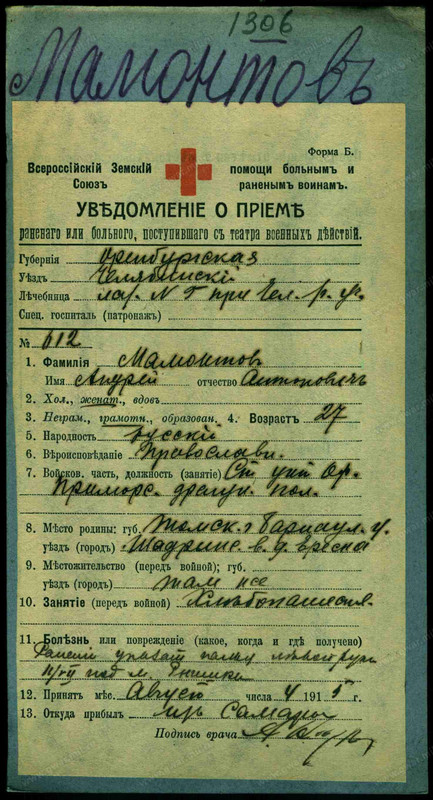 1306
Мамонтовъ
Форма Б.
Всероссійскій Земскій помощи больнымъ и
Союзъ раненымъ воинамъ.
УВѢДОМЛЕНІЕ О ПРІЕМѢ
раненаго или больного, поступившаго съ театра военныхъ дѣйствій.
Губернія Оренбургская
Уѣздъ Челябинскій
Лѣчебница лаз. № при Чел. р. у.
Спец. госпиталь (патронажъ)
№ 612
1. Фамилія Мамонтовъ
Имя Андрей отчество Антоновичъ
2. Хол., женат., вдов.
3. Неграм., грамотн., образован. 4. Возрастъ 27
5. Народность русскій
6. Вѣроисповѣданіе Православн.
7. Войсков. часть, должность (занятіе) Ст. унт. оф.
Приморс. драгун. пол.
8. Мѣсто родины: губ. Томск. г. Барнаул. у.
уѣздъ (городъ) Шадринс. в. д.
9. Мѣстожительство (передъ войной); губ.
уѣздъ (городъ) там же
10. Занятіе (передъ войной) Хлѣбопашест.
11. Болѣзнь или поврежденіе (какое, когда и гдѣ получено)
Раненіе указат. пальц. лѣвой руки
под м.
12. Принятъ мѣс. Август числа 4 1915 г.
13. Откуда прибылъ из Самары
Подпись врача